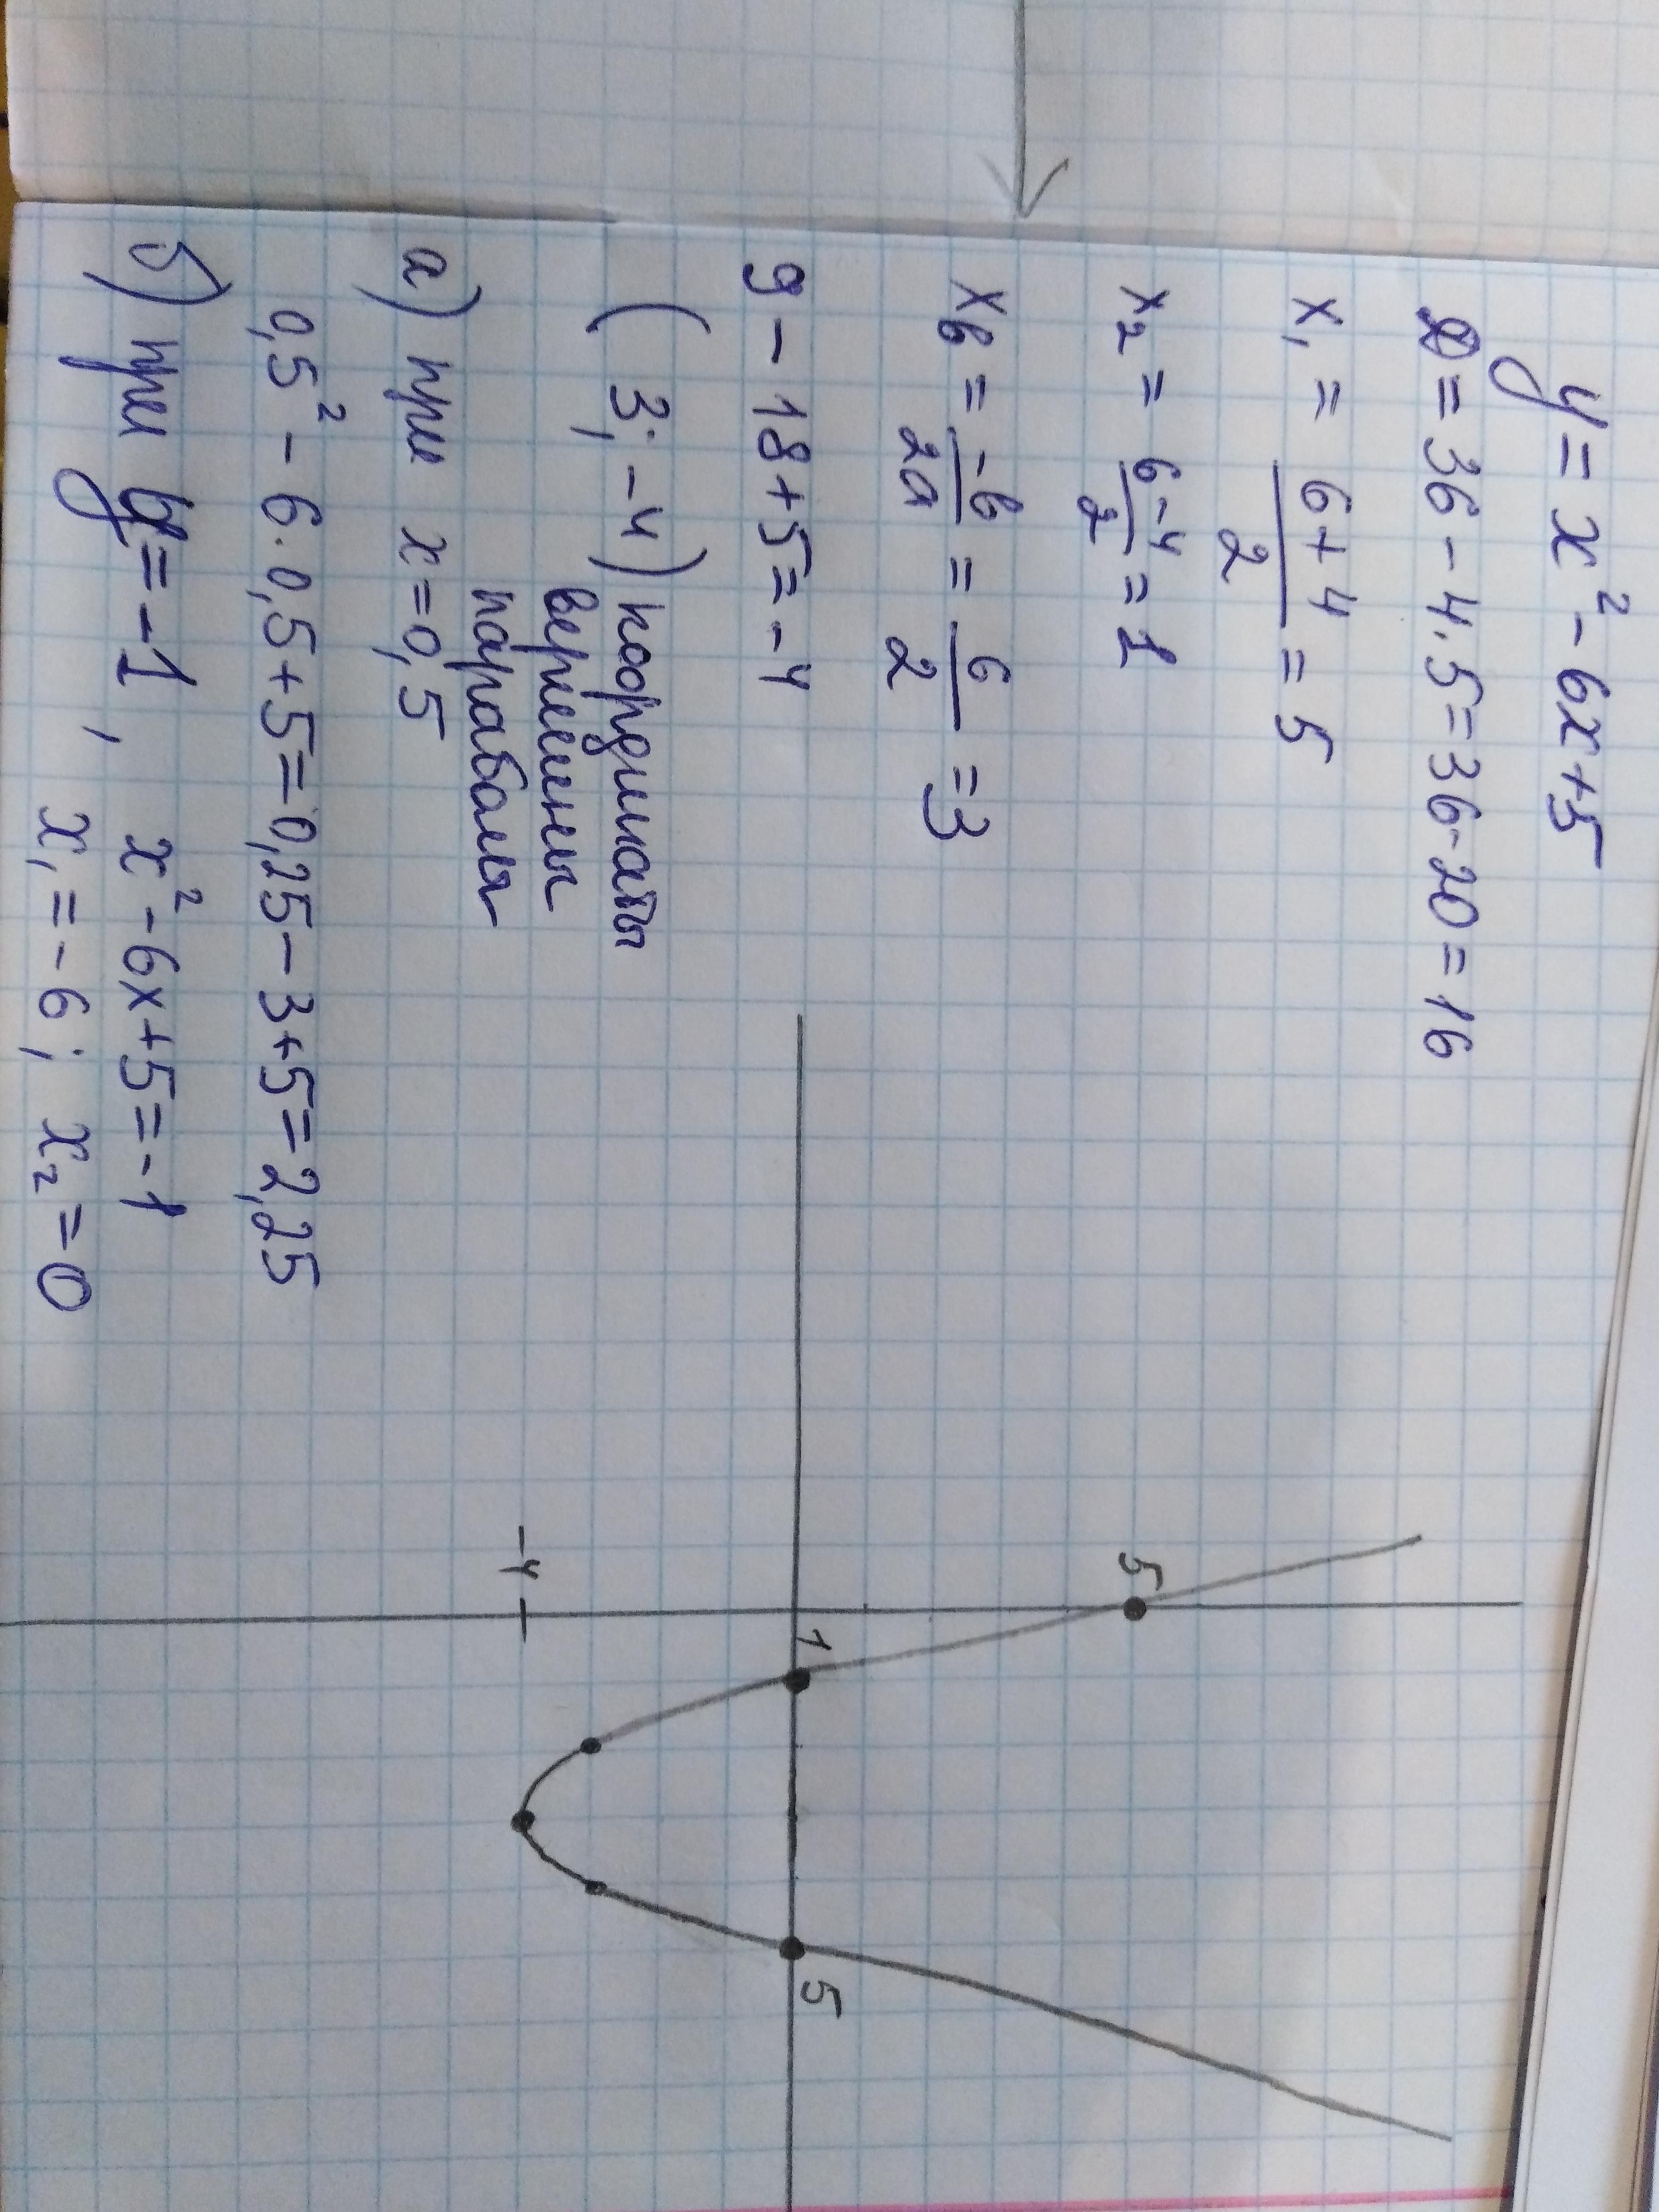 y = x² - 6x + 5
D = 36 - 4·5 = 36 - 20 = 16
x₁ = (6+4)/2 = 5
x₂ = (6-4)/2 = 1
xв = -в/2а = 6/2 = 3
9 - 18 + 5 = -4
(3; -4) координаты
вершины
параболы
а) при x = 0,5
0,5² - 6·0,5 + 5 = 0,25 - 3 + 5 = 2,25
б) при y = -1, x² - 6x + 5 = -1
x₁ = -6; x₂ = 0
5
1
5
-4